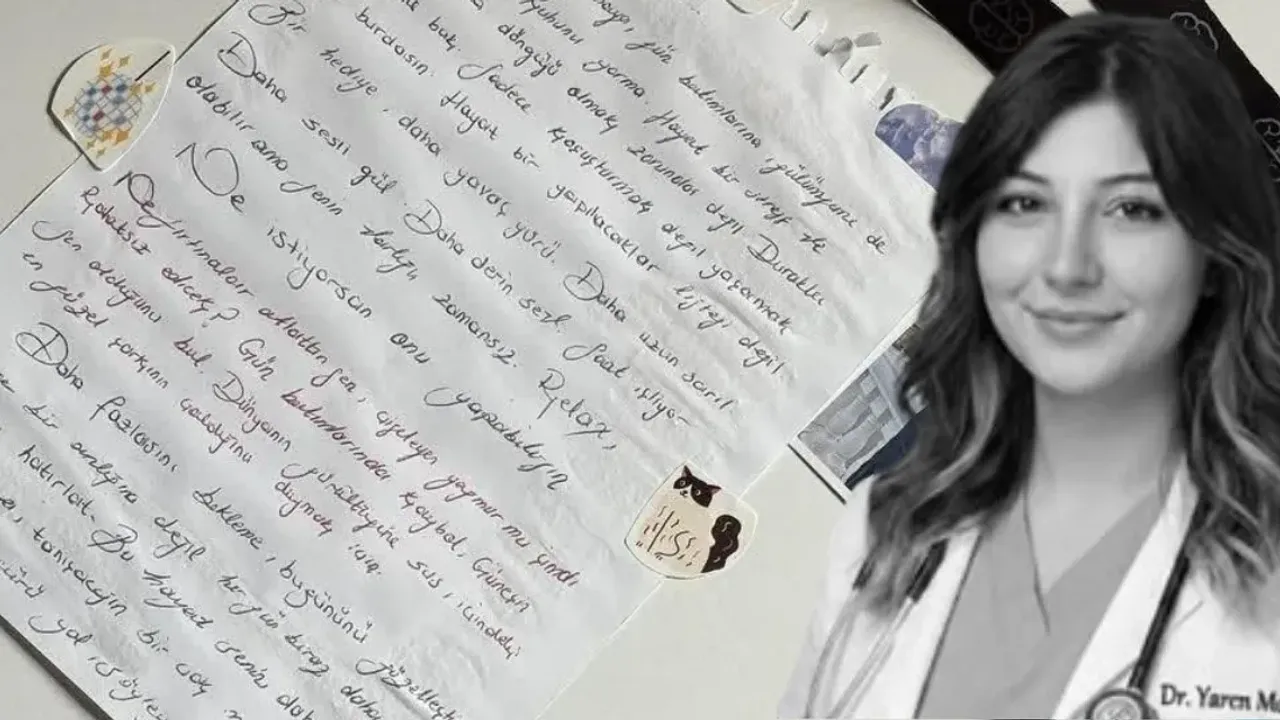 gün batımlarına, gülümseme de
Ruhunu yorma. Hayat bir stres ve
döngüsü olmak zorunda değil Durakla
bak. Sadece koşuşturmak değil yaşamak
burdasın. Hayat bir yapılacaklar listesi değil.
Bir hediye, daha yavaş yürü. Daha uzun sarıl.
Daha sesli gül Daha derin sev. Saat işliyor
olabilir ama senin varlığın zamansız. Relax,
Ne istiyorsan onu yapabilirsin
Ne fırtınalar atlattın sen, çiseleyen yağmur mu şimdi
Rahatsız edicek? Gün batımlarında kaybol, Güneşin
sen olduğunu bul Dünyanın gürültüsüne sus, içindeki
en güzel şarkının çaldığını duymak için.
Daha fazlasını bekleme, bugününü güzelleştir
bir aralığına değil her gün biraz daha
hatırlat. Bu hayat senin
tanışacağın bir çok
yol
Dr. Yaren M